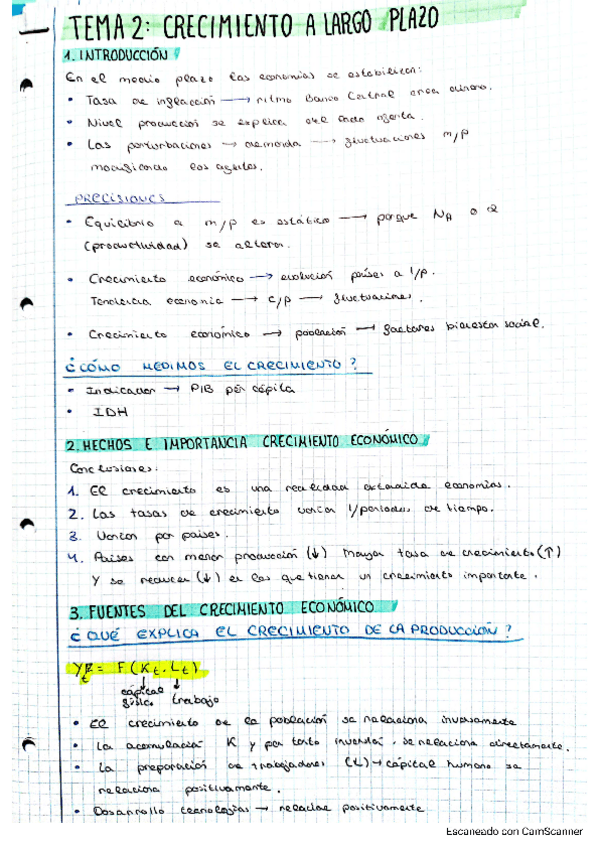 TEMA 2: CRECIMIENTO A LARGO PLAZO
1. INTRODUCCIÓN
En el medio plazo las economías se estabilizan:
• Tasa de inflación → ritmo Banco Central crea dinero.
• Nivel producción se explica del lado oferta.
• Las perturbaciones → demanda → fluctuaciones m/p
modificando los agentes.
PRECISIONES
• Equilibrio a m/p es estático → porque NA o
(productividad) se alteran.
• Crecimiento económico → evolución países a l/p.
Tendencia economía → c/p → fluctuaciones.
• Crecimiento económico → población → factores bienestar social.
¿CÓMO MEDIMOS EL CRECIMIENTO?
• Indicador → PIB per cápita
• IDH
2. HECHOS E IMPORTANCIA CRECIMIENTO ECONÓMICO
Conclusiones:
1. El crecimiento es una realidad economías.
2. Las tasas de crecimiento varían /periodos de tiempo.
3. Varían por países.
4. Países con menor producción (↓) mayor tasa de crecimiento (↑)
Y se reducen (↓) en los que tienen un crecimiento importante.
3. FUENTES DEL CRECIMIENTO ECONÓMICO
¿QUÉ EXPLICA EL CRECIMIENTO DE LA PRODUCCIÓN?
Yt = F(Kt, Lt)
cápital trabajo
físico
• El crecimiento de la población se relaciona inversamente
• La acumulación K y por tanto inversión, se relaciona directamente.
• La preparación de trabajadores (L) → cápital humano se
relaciona positivamente.
• Desarrollo tecnologías → positivamente
Escaneado con CamScanner